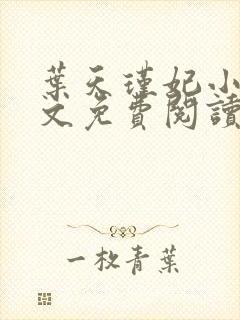 葉天瑾妃小
文免費閱讀
一枚青葉